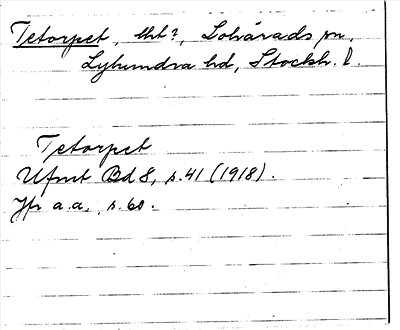 Tetorpet, tht?, Lohärads sn,
Lyhundra hd, Stockh. l.
Tetorpet
Ufmt Bd 8, s. 41 (1918).
Jfr a.a. s. 60.